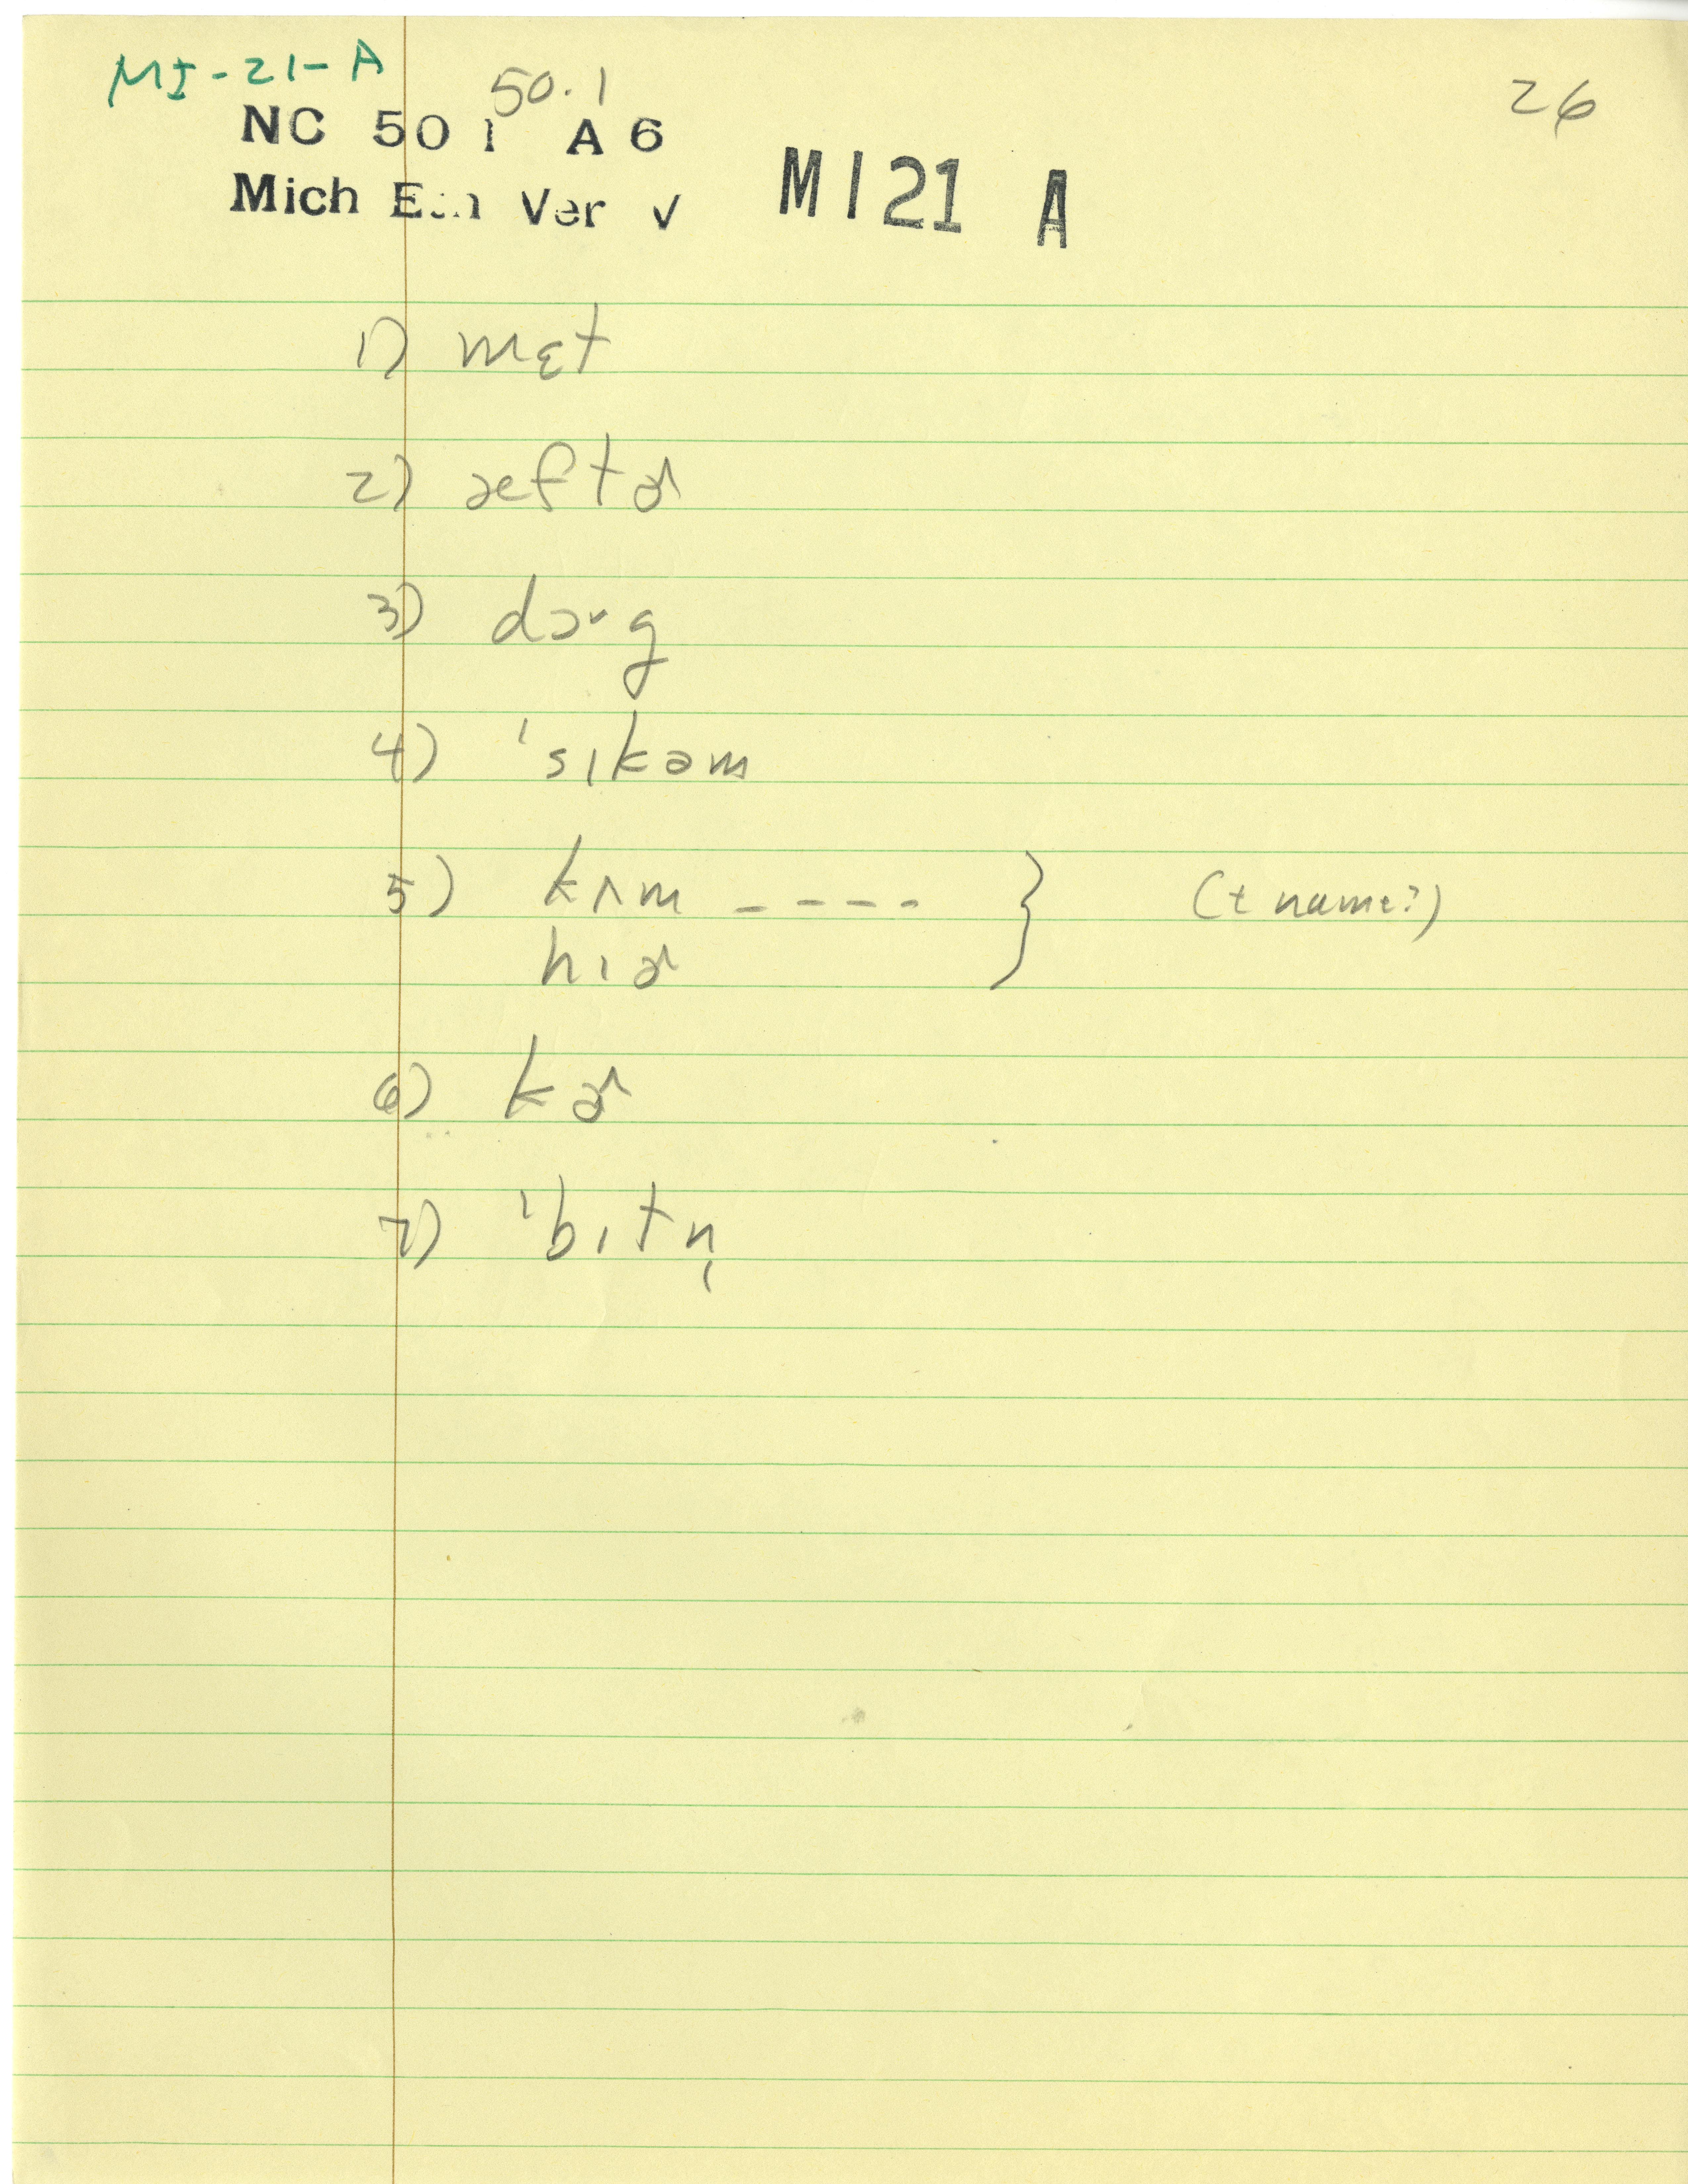 MI-21-A
50.1
26
NC 501 A6
Mich Ver V
MI21 A
1) mɛt
2) æftɚ
3) dɔ˞g
4) ˈsɪkəm
5) kʌm ---- (+ name?)
hɪɚ
6) kɚ
7) ˈbɪtn̩